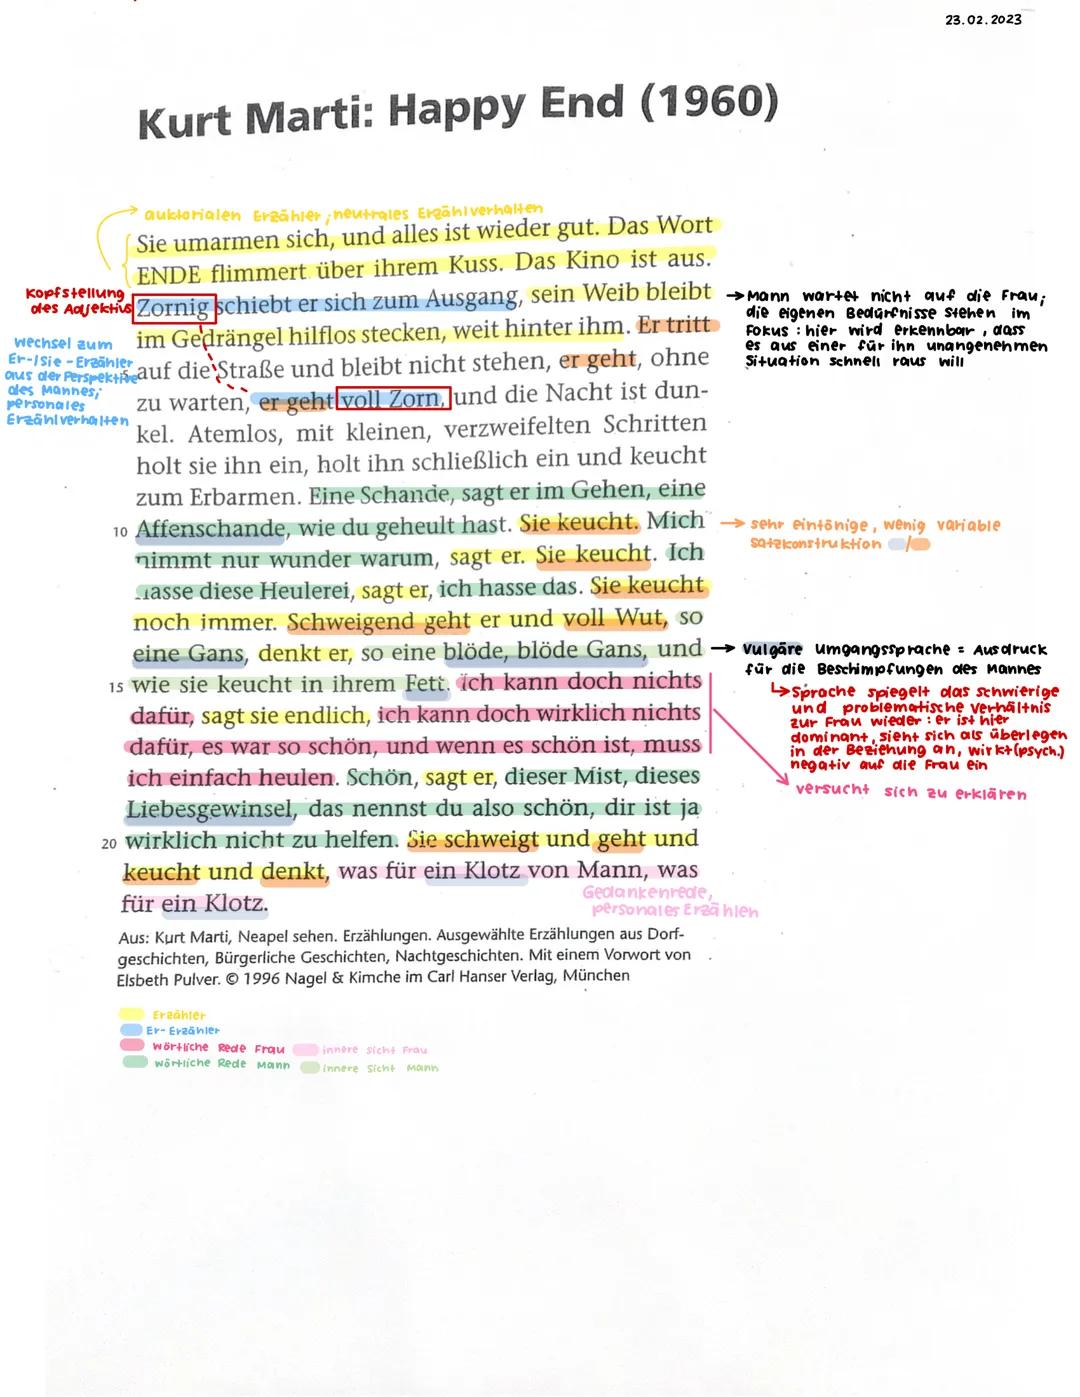 23.02.2023
Kurt Marti: Happy End (1960)
auktorialen Erzähler; neutrales Erzählverhalten
Sie umarmen sich, und alles ist wieder gut. Das Wort
ENDE flimmert über ihrem Kuss. Das Kino ist aus.
Kopfstellung
des Adjektivs
Zornig schiebt er sich zum Ausgang, sein Weib bleibt
im Gedrängel hilflos stecken, weit hinter ihm. Er tritt
→ Mann wartet nicht auf die Frau;
die eigenen Bedürfnisse stehen im
Fokus : hier wird erkennbar , dass
es aus einer für ihn unangenehmen
Situation schnell raus will
Wechsel zum
Er-/Sie-Erzähler
aus der Perspektive
des Mannes;
personales
Erzählverhalten
5 auf die Straße und bleibt nicht stehen, er geht, ohne
zu warten, er geht voll Zorn, und die Nacht ist dun-
kel. Atemlos, mit kleinen, verzweifelten Schritten
holt sie ihn ein, holt ihn schließlich ein und keucht
zum Erbarmen. Eine Schande, sagt er im Gehen, eine
10 Affenschande, wie du geheult hast. Sie keucht. Mich
→ sehr eintönige, wenig variable
Satzkonstruktion /
nimmt nur wunder warum, sagt er. Sie keucht. Ich
hasse diese Heulerei, sagt er, ich hasse das. Sie keucht
noch immer. Schweigend geht er und voll Wut, so
eine Gans, denkt er, so eine blöde, blöde Gans, und
→ Vulgäre Umgangssprache = Ausdruck
für die Beschimpfungen des Mannes
↳Sprache spiegelt das schwierige
und problematische Verhältnis
zur Frau wieder : er ist hier
dominant, sieht sich als überlegen
in der Beziehung an, wirkt (psych.)
negativ auf die Frau ein
15 wie sie keucht in ihrem Fett. Ich kann doch nichts
dafür, sagt sie endlich, ich kann doch wirklich nichts
dafür, es war so schön, und wenn es schön ist, muss
ich einfach heulen. Schön, sagt er, dieser Mist, dieses
versucht sich zu erklären
Liebesgewinsel, das nennst du also schön, dir ist ja
20 wirklich nicht zu helfen. Sie schweigt und geht und
keucht und denkt, was für ein Klotz von Mann, was
für ein Klotz.
Gedankenrede,
personales Erzählen
Aus: Kurt Marti, Neapel sehen. Erzählungen. Ausgewählte Erzählungen aus Dorf-
geschichten, Bürgerliche Geschichten, Nachtgeschichten. Mit einem Vorwort von
Elsbeth Pulver. © 1996 Nagel & Kimche im Carl Hanser Verlag, München
Erzähler
Er-Erzähler
wörtliche Rede Frau innere Sicht Frau
wörtliche Rede Mann innere Sicht Mann